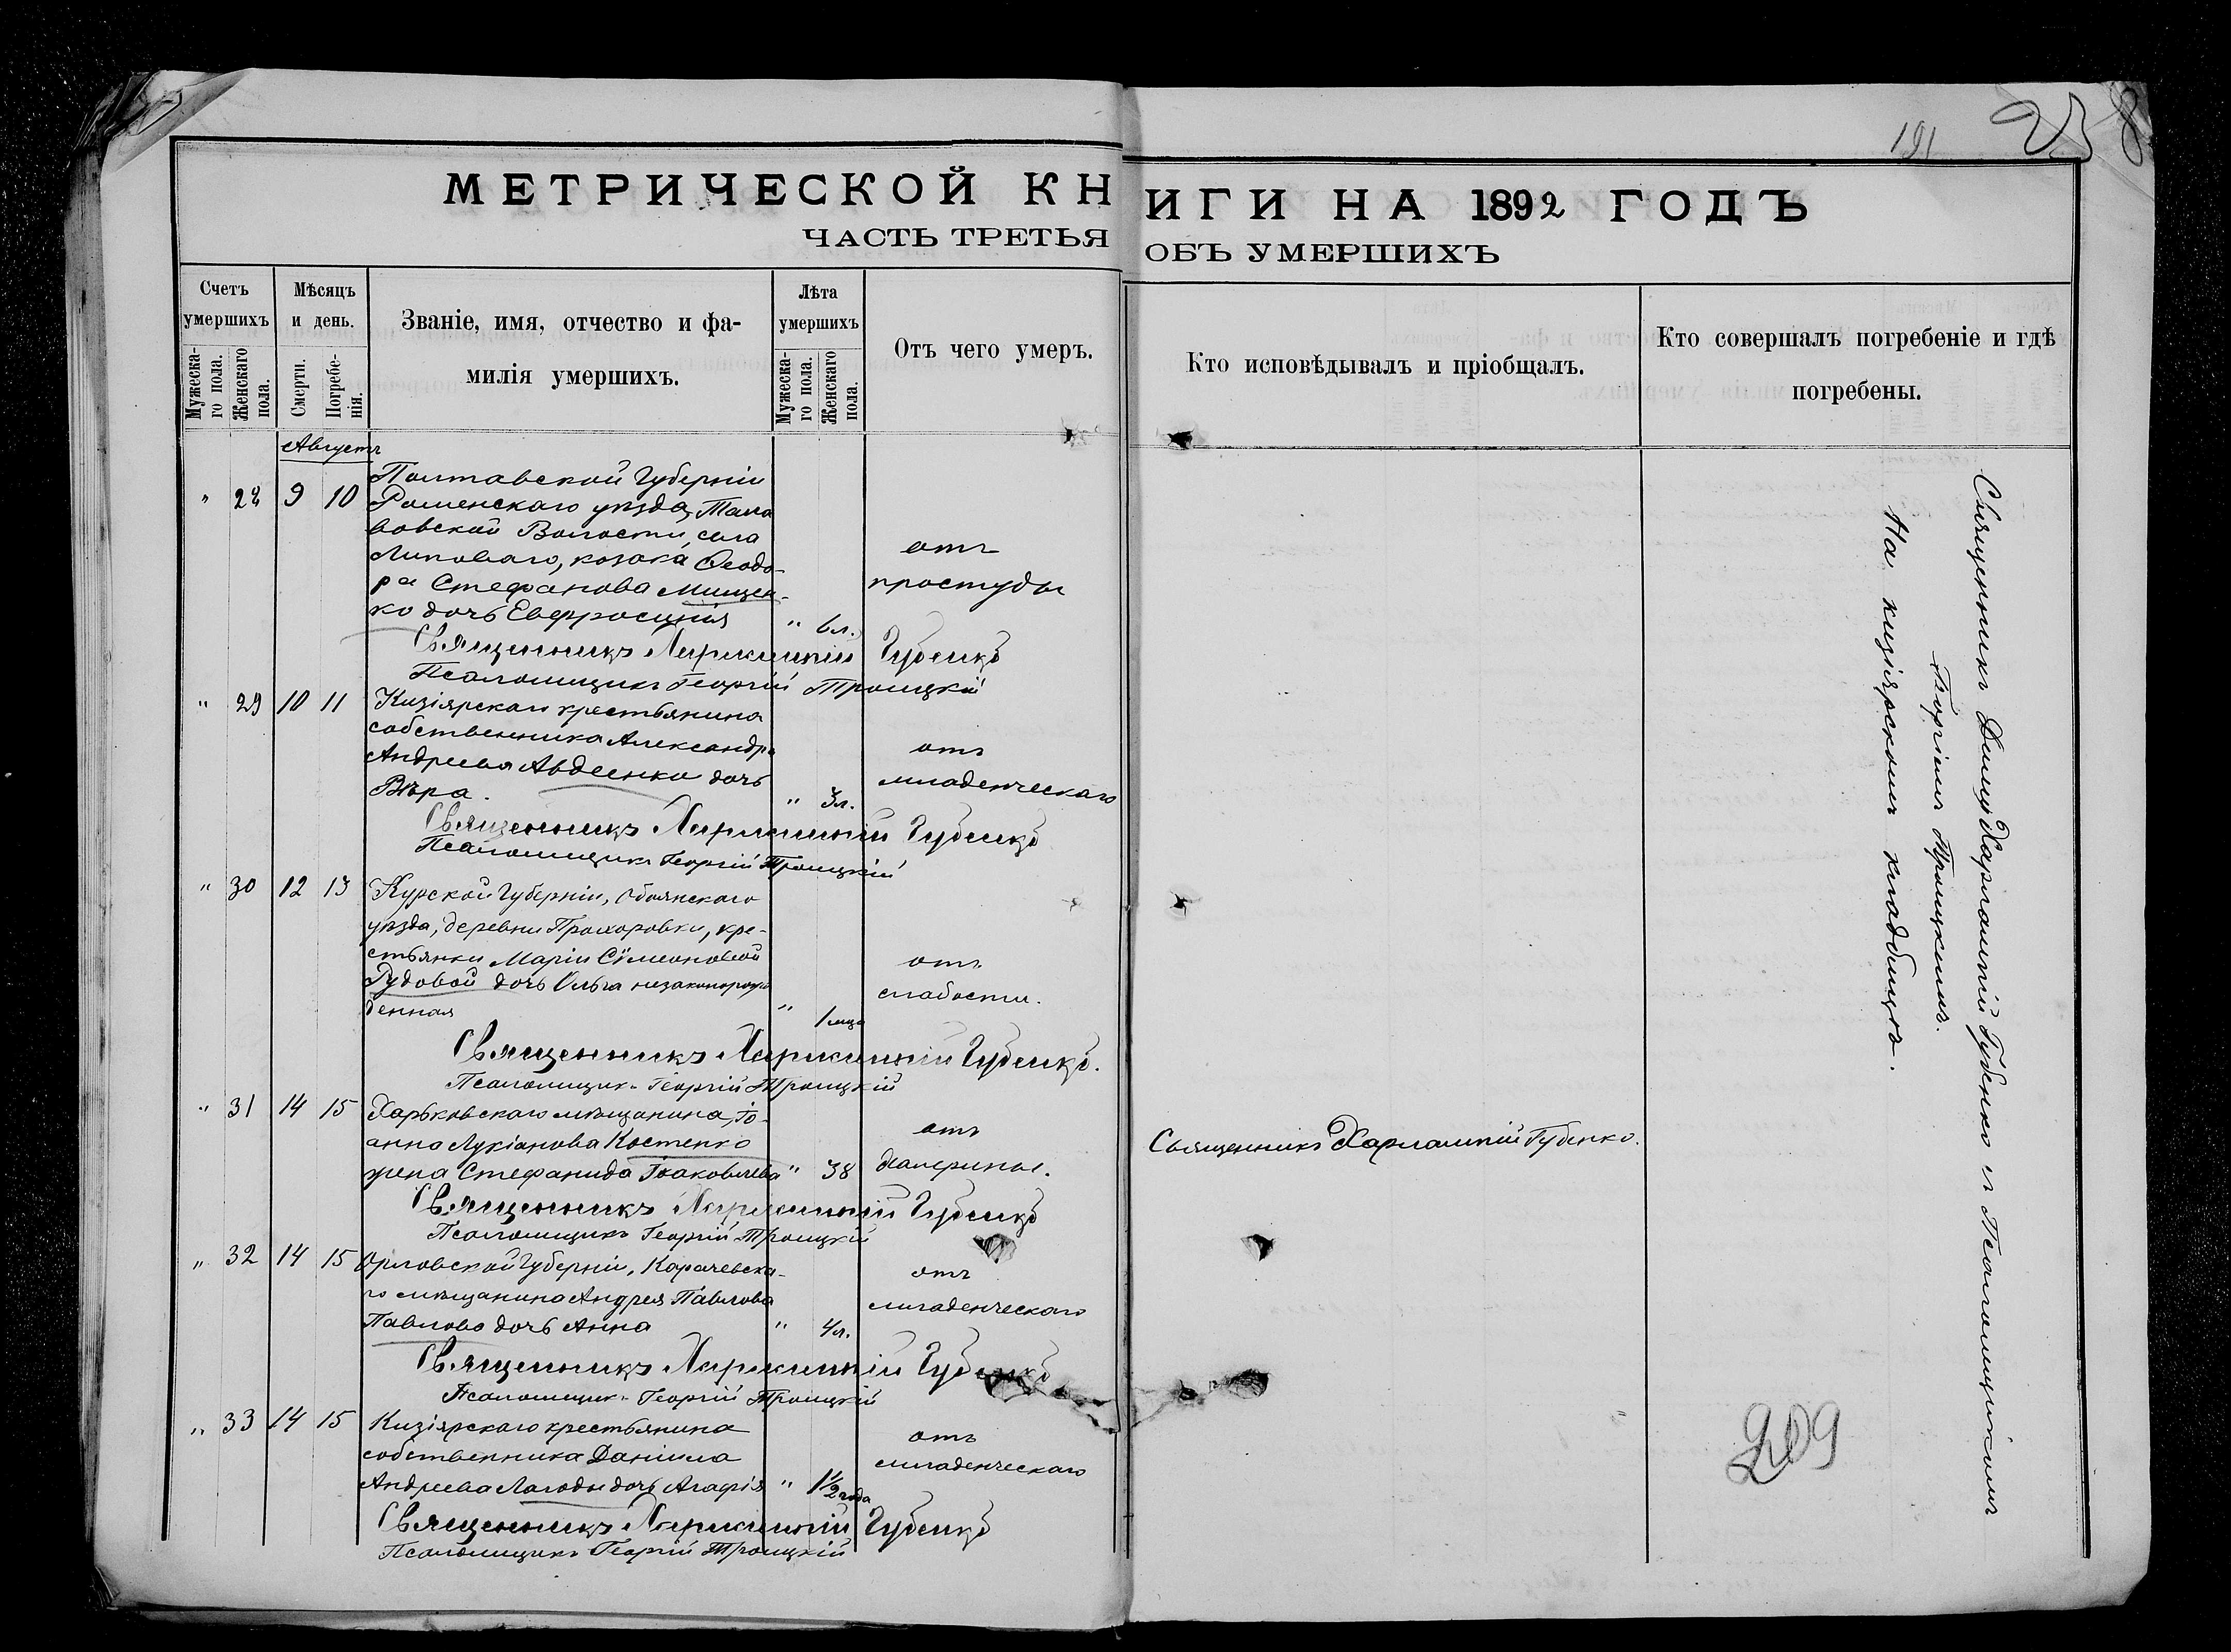 191
238
МЕТРИЧЕСКОЙ КНИГИ НА 1892 ГОДЪ
ЧАСТЬ ТРЕТЬЯ ОБЪ УМЕРШИХЪ
Счетъ умершихъ
Мужеска-го пола.
Женскаго пола.
Мѣсяцъ и день.
Смерти.
Погребе-нія.
Званіе, имя, отчество и фа-
милія умершихъ.
Лѣта умершихъ
Мужеска-го пола.
Женскаго пола.
Отъ чего умеръ.
Кто исповѣдывалъ и пріобщалъ.
Кто совершалъ погребеніе и гдѣ
погребены.
Августъ
" 28 9 10
Полтавской Губерніи
Роменскаго уѣзда,
вовской Волости, села
Липоваго, козака Ѳеодо-
ра Стефанова Мищен-
ко дочь Евфросинія
" 6 л.
отъ
простуды
Священникъ Харлампій Губенко
Псаломщикъ Георгій Троицкій
" 29 10 11
Кизіярскаго крестьянина
собственника Александра
Андреева Авдеенко дочь
Вѣра.
" 3 л.
отъ
младенческаго
Священникъ Харлампій Губенко
Псаломщикъ Георгій Троицкій
" 30 12 13
Курской Губерніи, Обоянскаго
уѣзда, деревни Прохоровки, кре-
стьянки Маріи Сѵмеоновой
Рудовой дочь Ольга незаконорож
денная
" 1 мца
отъ
слабости.
Священникъ Харлампій Губенко.
Псаломщикъ Георгій Троицкій
" 31 14 15
Харьковскаго мѣщанина, Іо-
анна Лукіанова Костенко
жена Стефанида Іаковлева
" 38
отъ
Холерины.
Священникъ Харлампій Губенко.
Священникъ Харлампій Губенко
Псаломщикъ Георгій Троицкій
" 32 14 15
Орловской Губерніи, Карачевска-
го мѣщанина Андрея Павлова
Павлова дочь Анна
" 4 л.
отъ
младенческаго
Священникъ Харлампій Губенко
Псаломщикъ Георгій Троицкій
" 33 14 15
Кизіярскаго крестьянина
собственника Даніила
Андреева Лагоды дочь Агафія
" 1½ года
отъ
младенческаго
Священникъ Харлампій Губенко
Псаломщикъ Георгій Троицкій
Священникъ Харлампій Губенко съ Псаломщикомъ
Георгіемъ Троицкимъ.
На кизіярскомъ кладбищѣ.
209